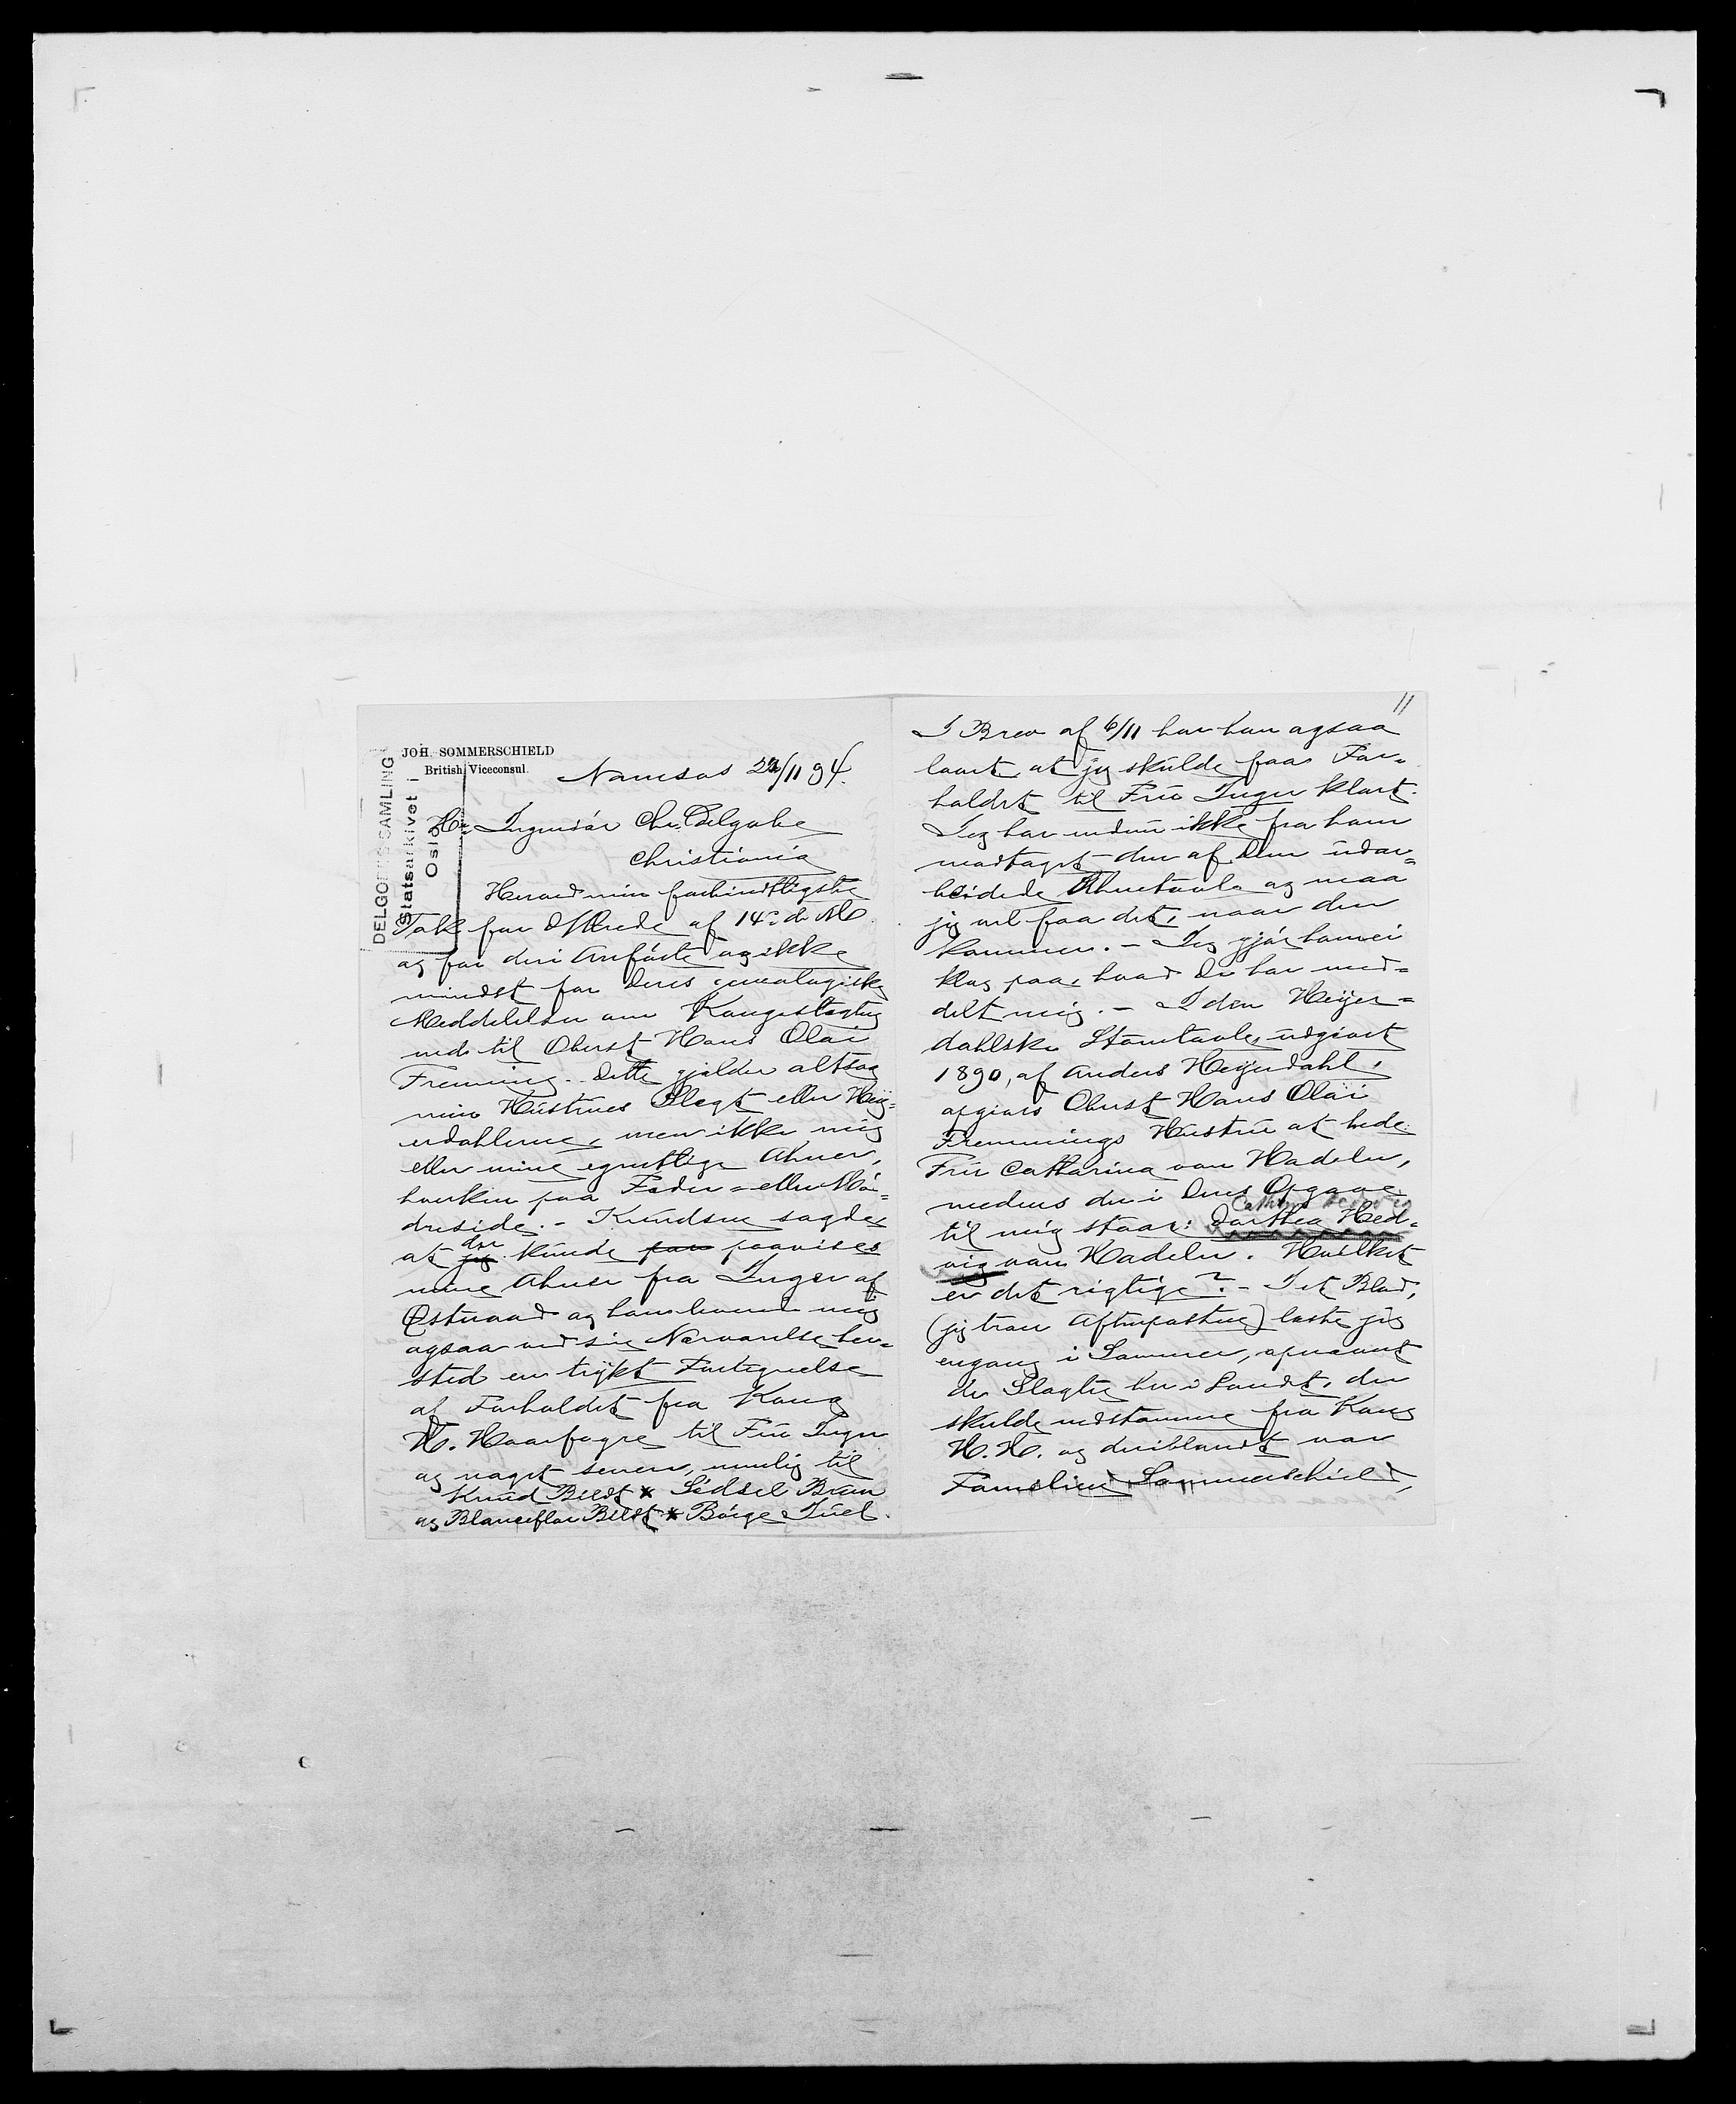 JOH. SOMMERSCHIELD
British Viceconsul.
DELGOBES SAMLING
i Statsarkivet i
Oslo
Namsos 22/11 94.
Hr Ingeniør Chr. Delgobe
Christiania
Herved min forbindtligste
Tak for D/Ærede af 14de ds
og for deri Anførte og ikke
mindst for Deres genealogiske
Meddelelser om Kongeslægten
ned til Oberst Hans Olai
Freming. Dette gjælder altsaa
min Hustrues Slegt eller Heÿ=
erdahlerne, men ikke mig
eller mine egentlige Ahner,
hverken paa Fader= eller Mø=
dreside. - Knudsen sagde
at jeg der kunde paavises
mine Ahner fra Inger af
Østraad og han leverede mig
ogsaa ved sin Nærværelse her=
sted en trÿkt Fortegnelse
af Forholdet fra Kong
H. Haarfagre til Fru Inger
og noget senere, nemlig til
Knud Bildt * Sidsel Bruun
og Blanceflor Bildt * Børge Juel.
11
I Brev af 6/11 har han ogsaa
lovet, at jeg skulde faa For=
holdet til Fru Inger klart.
Jeg har endnu ikke fra ham
modtaget den af Dem udar=
beidede Ahnetavle og maa
jeg vel faa det, naar den
kommer. - Jeg gjør ham ei
klog paa, hvad De har med=
delt mig. - I den Heÿer=
dahlske Stamtavle, udgivet
1890, af Anders Heÿerdahl,
opgives Oberst Hans Olai
Fremmings Hustru at hede
Fru Catharina von Hadeln,
medens der i Deres Opgave
til mig staar: Dorthea Hed=
vig von Hadeln. Hvilket
er det rigtige? - I et Blad,
(jeg tror Aftenposten) læste jeg
engang i Sommer, opnævnt
de Slægter her i Landet, der
skulde nedstamme fra Kong
H. H. og deriblandt var
Familien Sommerschield,